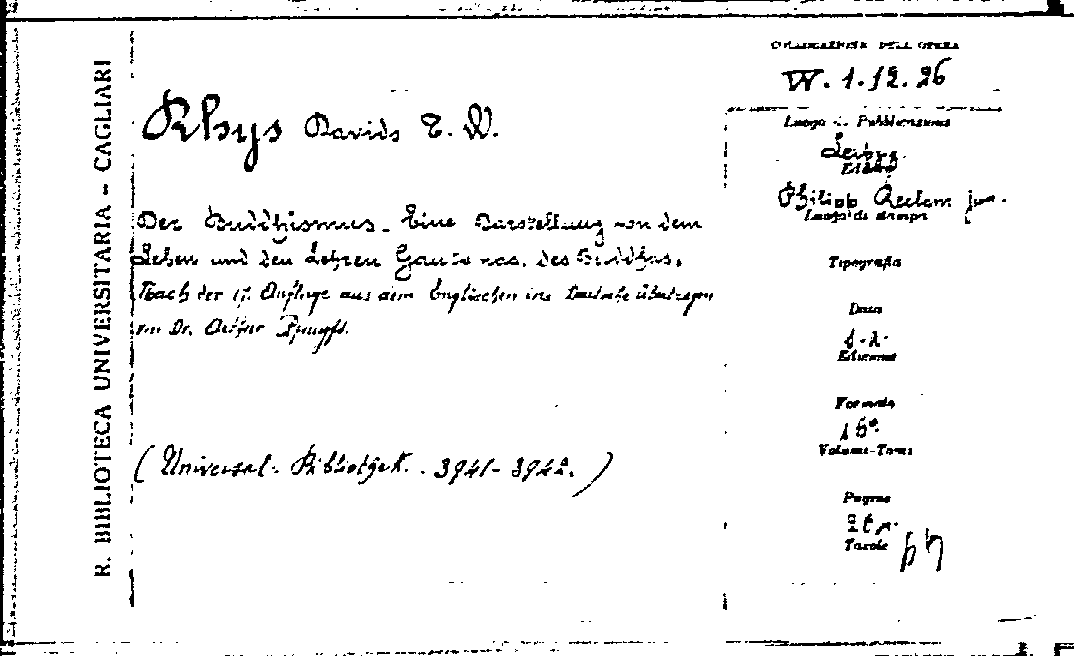 R. BIBLIOTECA UNIVERSITARIA - CAGLIARI
Rhys Davids T. W.
Der Buddhismus. Eine Darstellung von dem
Leben und den Lehren Gautamas, des Buddhas.
Nach der 17. Auflage aus dem Englischen ins Deutsche übertragen
von Dr. Arthur Pfungst.
(Universal-Bibliothek. 3941-3942.)
COLLOCAZIONE DELL'OPERA
W. 1.12.26
Luogo di Pubblicazione
Leipzig
Editore
Philipp Reclam jun.
Luogo di stampa
Tipografia
Data
s.d.
Edizione
Formato
16°
Volume-Tomi
Pagine
Tavole